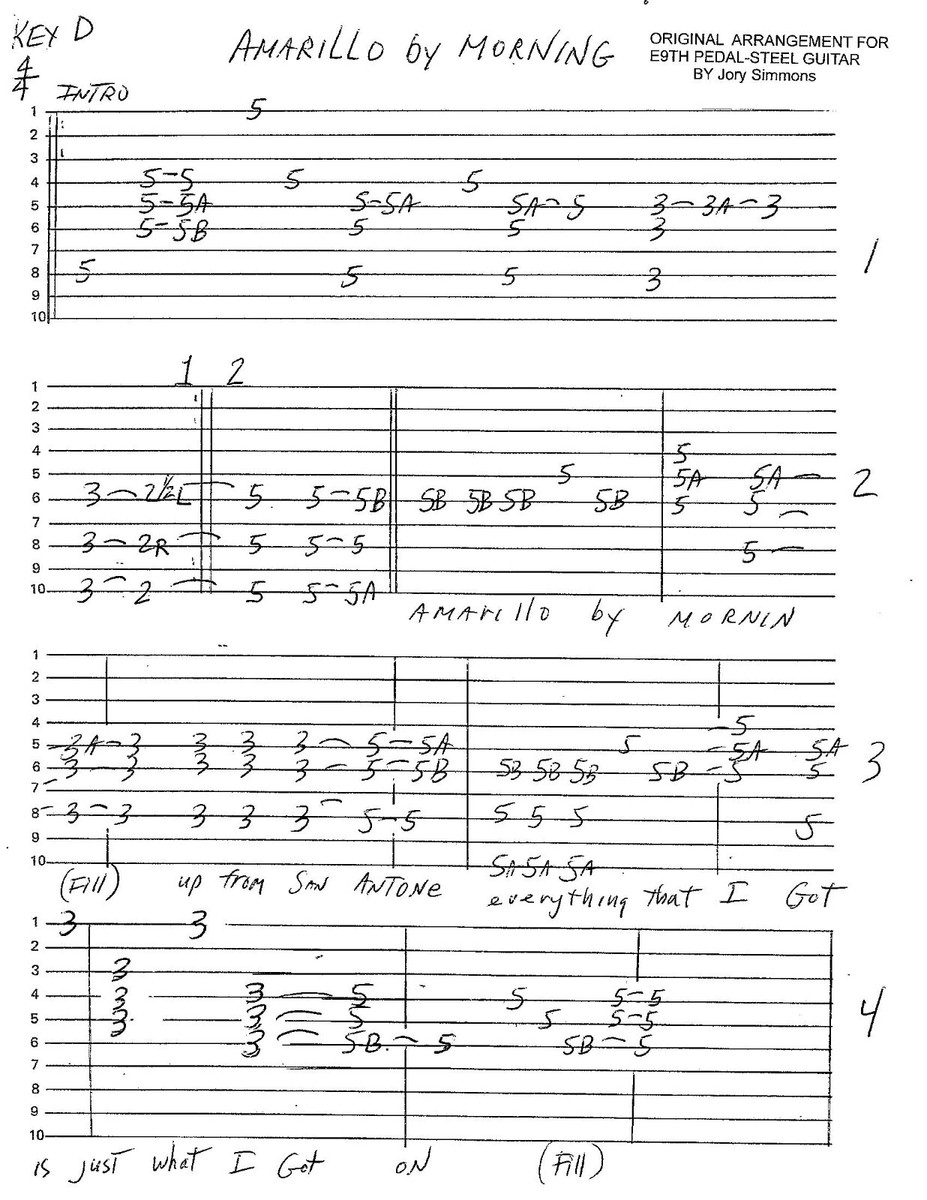 KEY D
4/4
AMARILLO by MORNING
ORIGINAL ARRANGEMENT FOR
E9TH PEDAL-STEEL GUITAR
BY Jory Simmons
INTRO
1 5
2
3
4 5-5 5 5
5 5-5A 5-5A 5A-5 3-3A-3
6 5-5B 5 5 3
7
8 5 5 5 3
9
10
1
1 2
1
2
3
4 5
5 5 5A 5A
6 3-2½L 5 5-5B 5B 5B 5B 5B 5 5
7
8 3-2R 5 5-5 5
9
10 3-2 5 5-5A
2
AMArillo by MORNIN
1
2
3
4 5
5 3A-3 3 3 3-5-5A 5 5A 5A
6 3-3 3 3 3-5-5B 5B 5B 5B 5B-5 5
7
8 3-3 3 3 3 5-5 5 5 5 5
9
10 5A 5A 5A
3
(Fill) up from SAN ANTONE everything that I Got
1 3 3
2
3 3
4 3 3-5 5 5-5
5 3 3-5 5 5-5
6 3-5B-5 5B-5
7
8
9
10
4
is just what I Got ON (Fill)